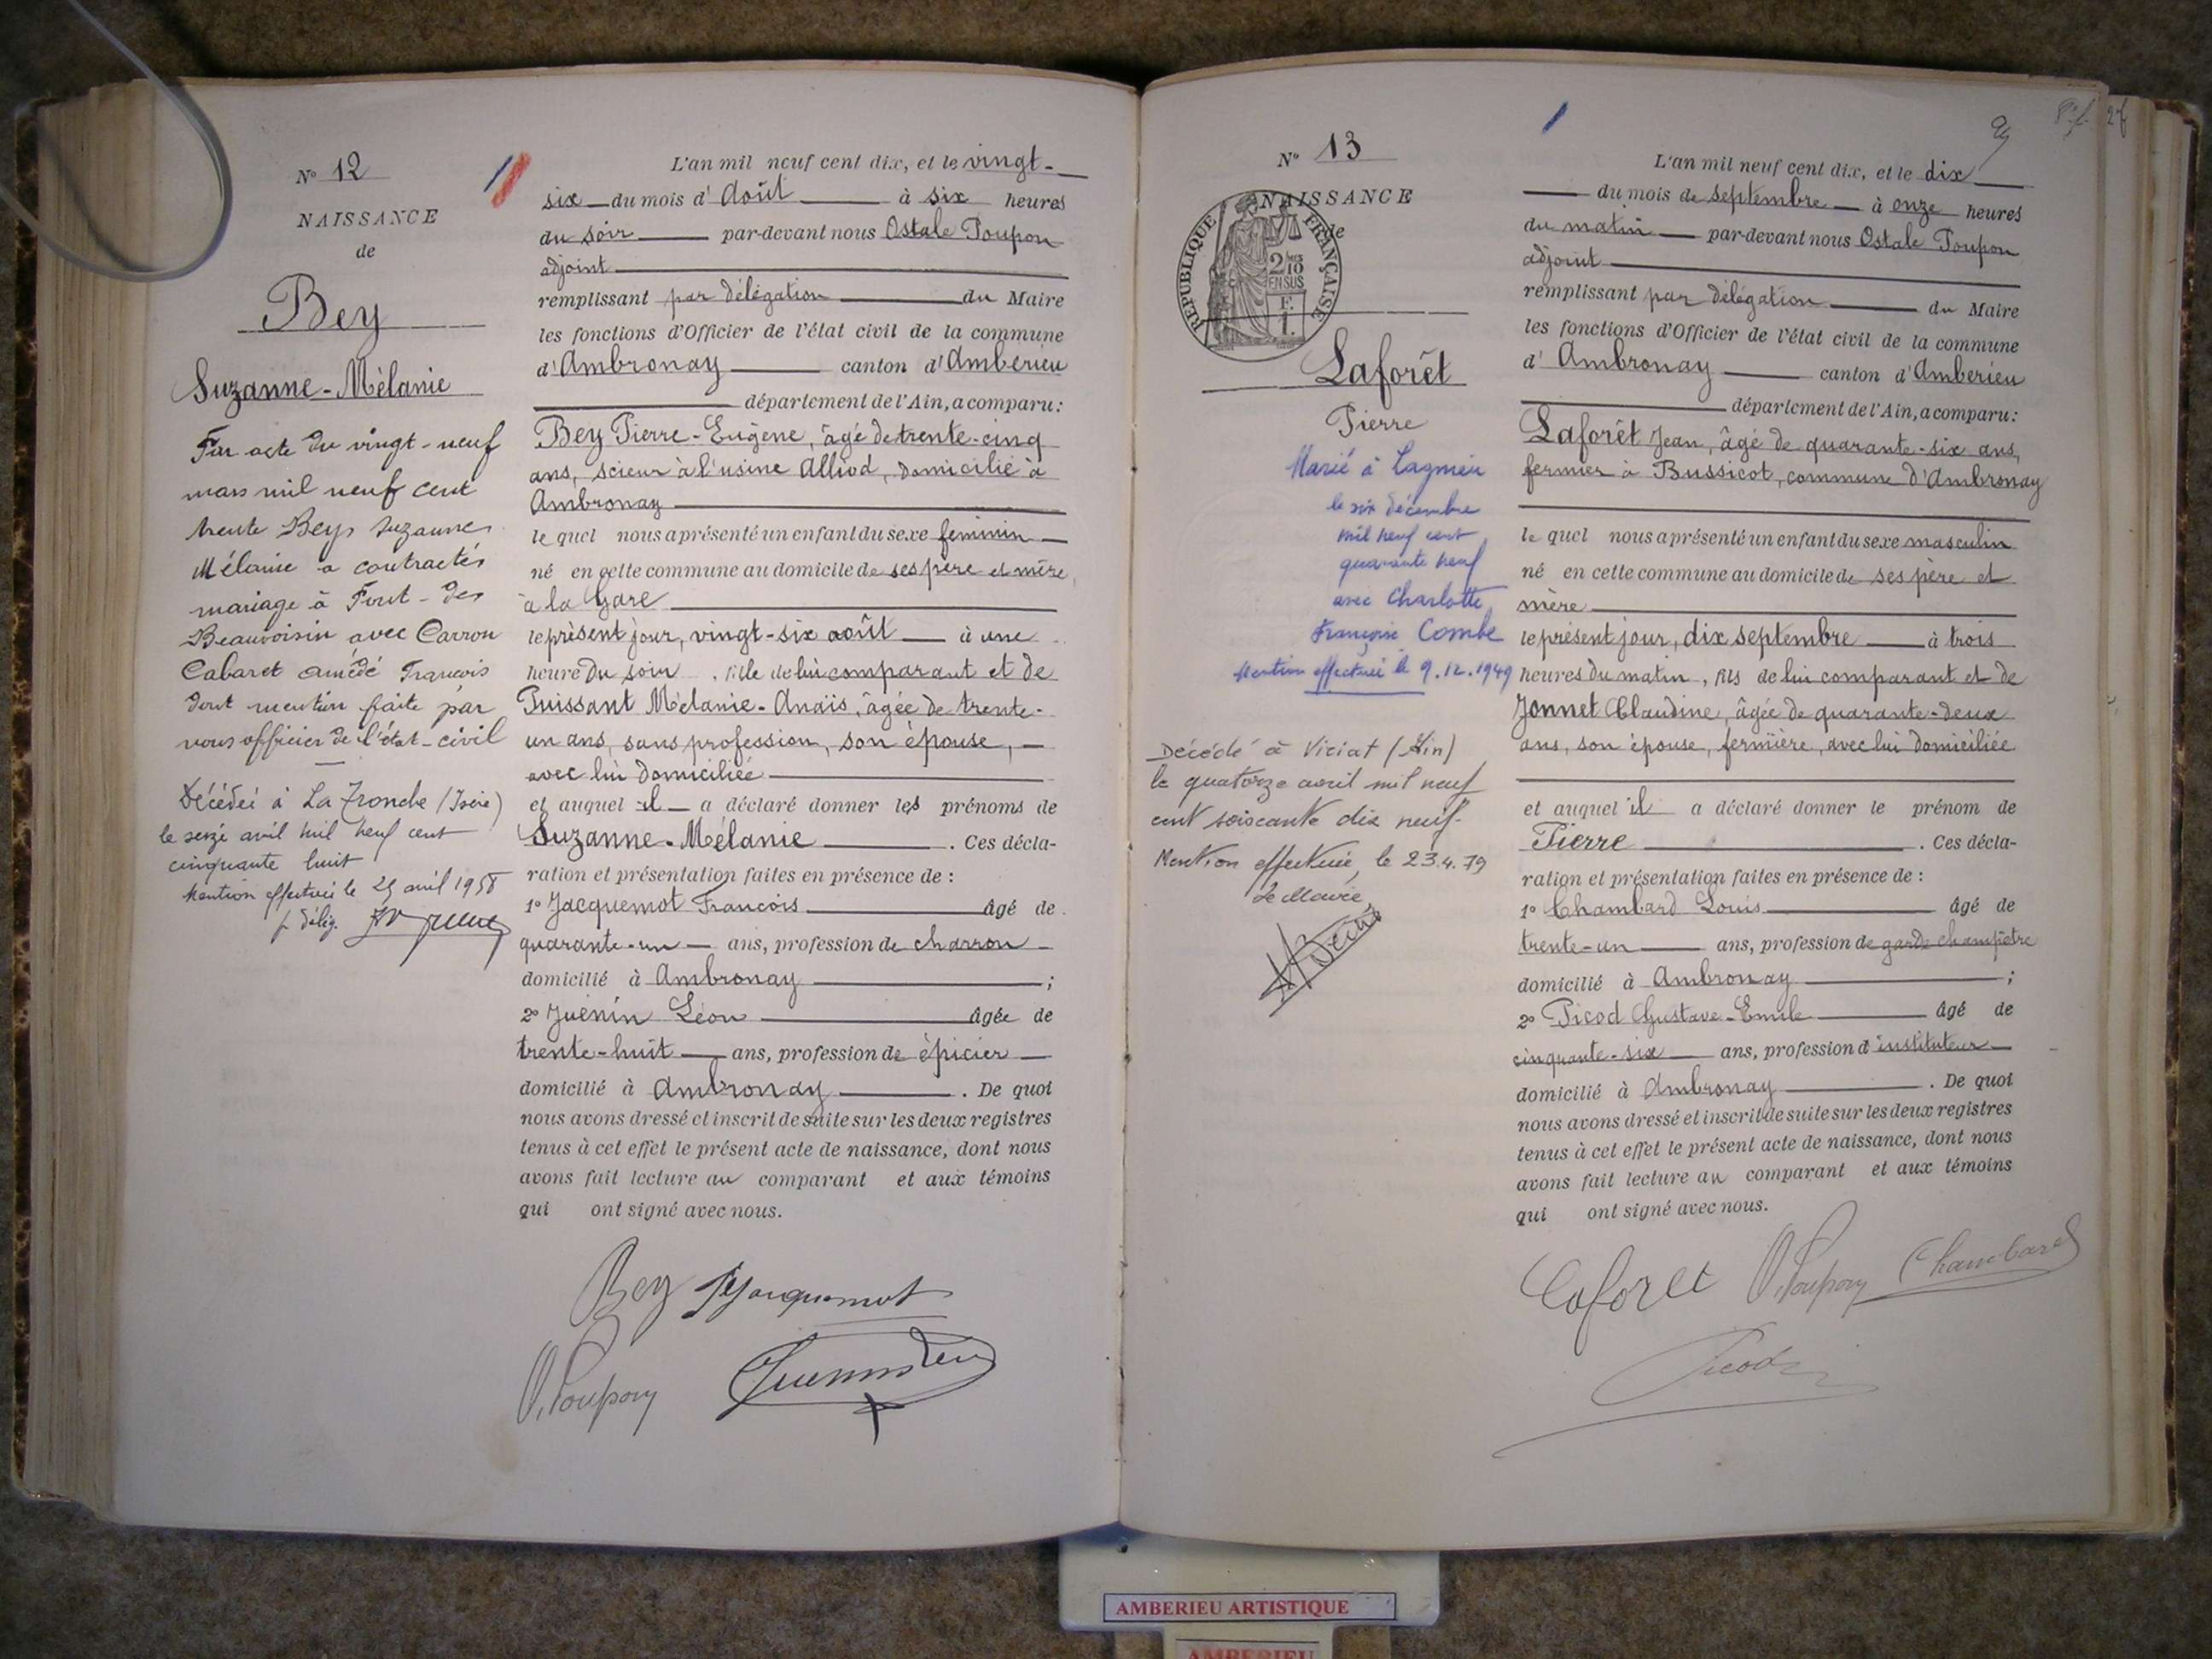 N° 12
NAISSANCE
de
Bey
Suzanne-Mélanie
Par acte du vingt-neuf
mars mil neuf cent
trente Bey Suzanne
Mélanie a contracté
mariage à Pont-de-
Beauvoisin avec Carron
Cabaret Amédé François
dont mention faite par
nous officier de l'état-civil
Décédée à La Tronche (Isère)
le seize avril mil neuf cent
cinquante huit
Mention effectuée le 25 avril 1958
p. délég.
L'an mil neuf cent dix, et le vingt-
six du mois d'Août à six heures
du soir par-devant nous Ostale Poupon
adjoint
remplissant par délégation du Maire
les fonctions d'Officier de l'état civil de la commune
d'Ambronay canton d'Amberieu
département de l'Ain, a comparu:
Bey Pierre-Eugène, âgé de trente-cinq
ans, scieur à l'usine Alliod, domicilié à
Ambronay
le quel nous a présenté un enfant du sexe féminin
né en cette commune au domicile de ses père et mère,
à la Gare
le présent jour, vingt-six août à une
heure du soir, fille de lui comparant et de
Puissant Mélanie-Anaïs, âgée de trente-
un ans, sans profession, son épouse,
avec lui domiciliée
et auquel il a déclaré donner les prénoms de
Suzanne-Mélanie. Ces décla-
ration et présentation faites en présence de :
1° Jacquemot François âgé de
quarante-un ans, profession de charron
domicilié à Ambronay ;
2° Juénin Léon âgée de
trente-huit ans, profession de épicier
domicilié à Ambronay. De quoi
nous avons dressé et inscrit de suite sur les deux registres
tenus à cet effet le présent acte de naissance, dont nous
avons fait lecture au comparant et aux témoins
qui ont signé avec nous.
Bey Jacquemot
O. Poupon Juenin Léon
N° 13
NAISSANCE
de
REPUBLIQUE FRANÇAISE
2/10
EN SUS
Laforêt
Pierre
Marié à Lagnieu
le six décembre
mil neuf cent
quarante neuf
avec Charlotte
Françoise Combe
Mention effectuée le 9.12.1949
Décédé à Viriat (Ain)
le quatorze avril mil neuf
cent soixante dix neuf.
Mention effectuée, le 23.4.79
Le Maire,
27
L'an mil neuf cent dix, et le dix
du mois de septembre à onze heures
du matin par-devant nous Ostale Poupon
adjoint
remplissant par délégation du Maire
les fonctions d'Officier de l'état civil de la commune
d'Ambronay canton d'Amberieu
département de l'Ain, a comparu:
Laforêt Jean, âgé de quarante-six ans,
fermier à Bussicot, commune d'Ambronay
le quel nous a présenté un enfant du sexe masculin
né en cette commune au domicile de ses père et
mère
le présent jour, dix septembre à trois
heures du matin, fils de lui comparant et de
Jonnet Claudine, âgée de quarante-deux
ans, son épouse, fermière, avec lui domiciliée
et auquel il a déclaré donner le prénom de
Pierre. Ces décla-
ration et présentation faites en présence de :
1° Chambard Louis âgé de
trente-un ans, profession de garde champêtre
domicilié à Ambronay ;
2° Picod Gustave-Emile âgé de
cinquante-six ans, profession d'instituteur
domicilié à Ambronay. De quoi
nous avons dressé et inscrit de suite sur les deux registres
tenus à cet effet le présent acte de naissance, dont nous
avons fait lecture au comparant et aux témoins
qui ont signé avec nous.
Laforet O. Poupon Chambard
Picod
AMBERIEU ARTISTIQUE
AMBERIEU